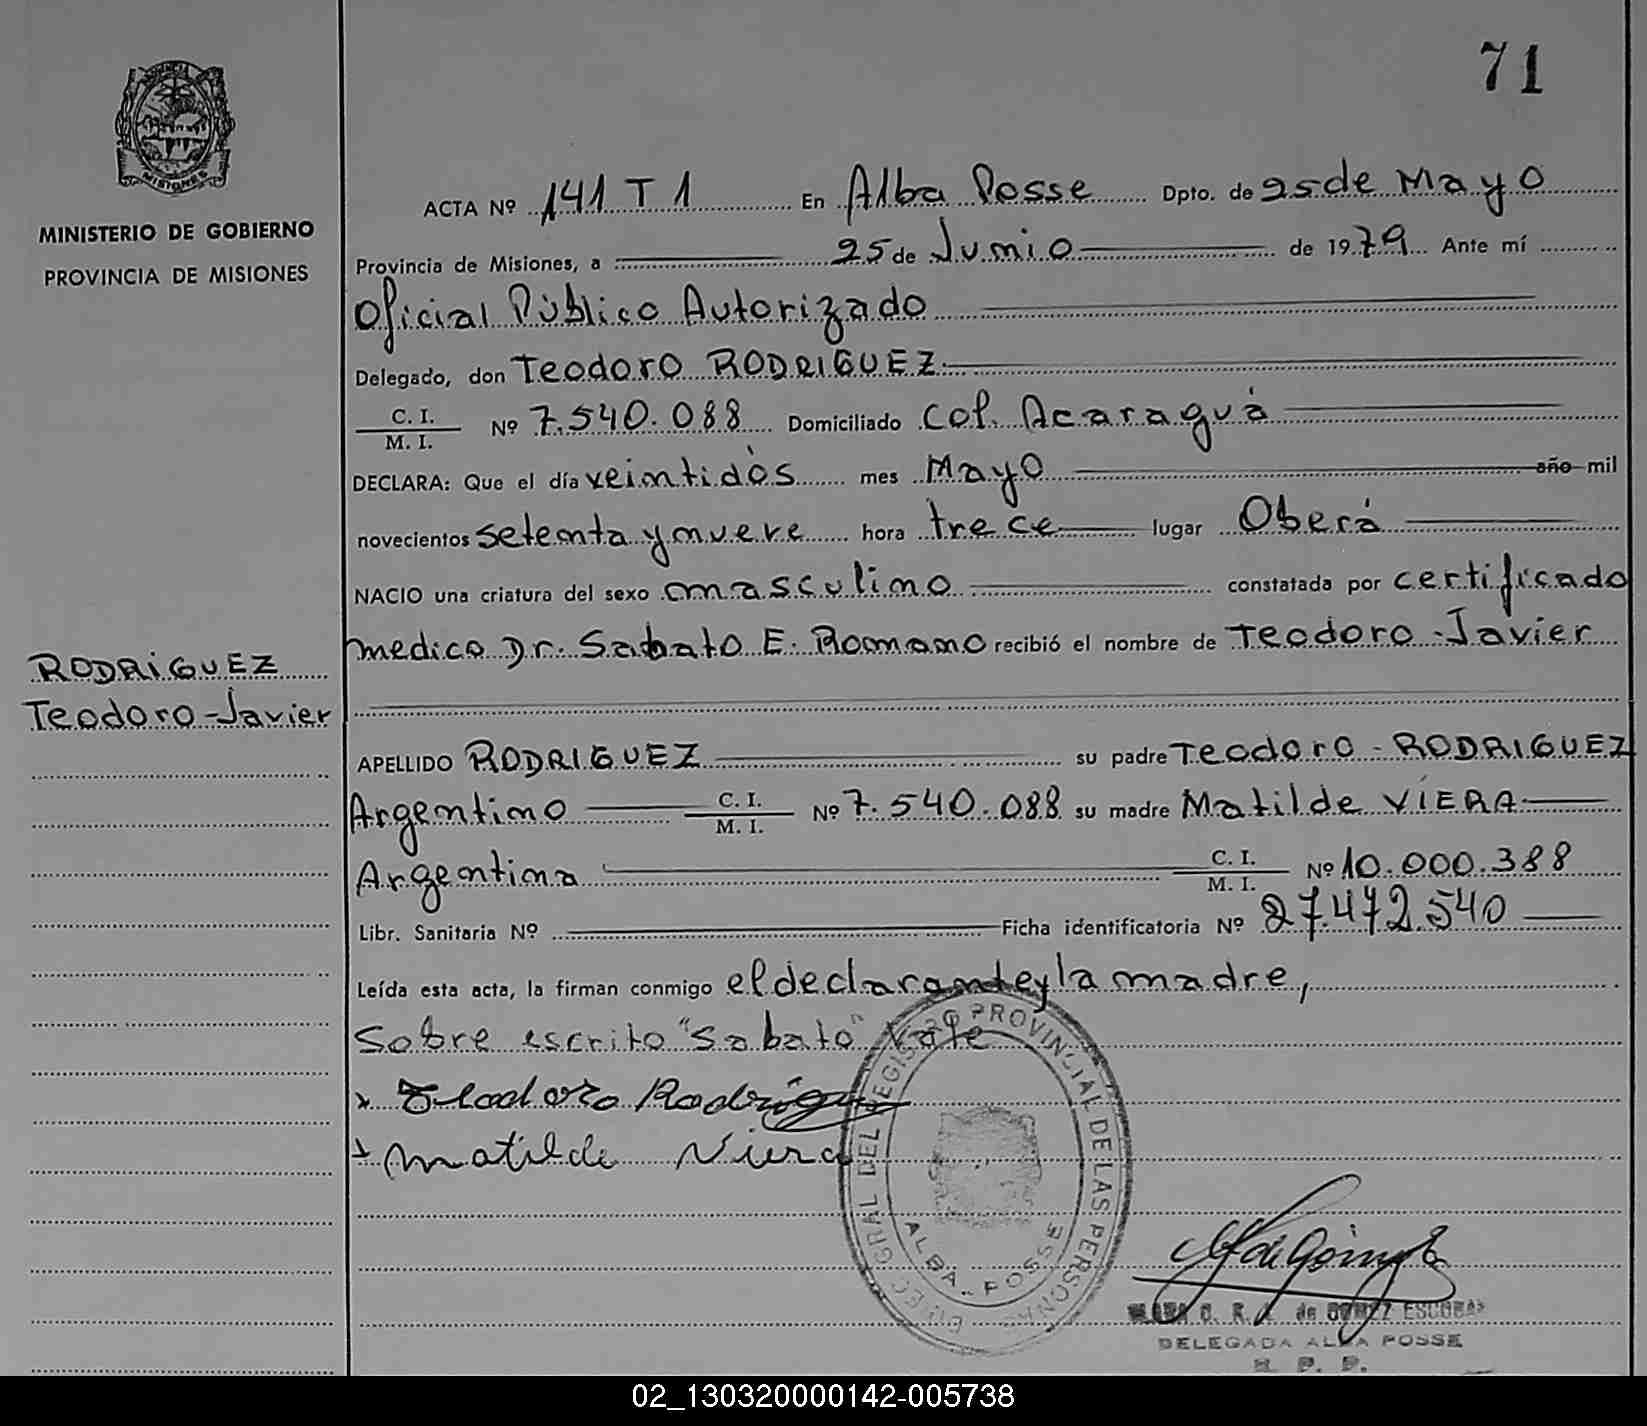 71
PROVINCIA
MISIONES
MINISTERIO DE GOBIERNO
PROVINCIA DE MISIONES
ACTA Nº 141 T 1 En Alba Posse Dpto. de 25 de Mayo
Provincia de Misiones, a 25 de Junio de 1979 Ante mí
Oficial Público Autorizado
Delegado, don Teodoro RODRIGUEZ
C. I.
M. I. Nº 7.540.088 Domiciliado Col. Acaraguá
DECLARA: Que el día veintidòs mes Mayo año mil
novecientos setenta y nueve hora trece lugar Oberá
NACIO una criatura del sexo masculino constatada por certificado
medico Dr. Sabato E. Romano recibió el nombre de Teodoro-Javier
RODRIGUEZ
Teodoro-Javier
APELLIDO RODRIGUEZ su padre Teodoro-RODRIGUEZ
Argentino C. I. M. I. Nº 7.540.088 su madre Matilde VIERA
Argentina C. I. M. I. Nº 10.000.388
Libr. Sanitaria Nº Ficha identificatoria Nº 27.472.540
Leída esta acta, la firman conmigo el declarante y la madre,
Sobre escrito "Sabato" Vale
x Teodoro Rodriguez
x Matilde Viera
GRAL DEL REGISTRO PROVINCIAL DE LAS PERSONAS
ALBA POSSE
C. R. de GOMEZ ESCOBAR
DELEGADA ALBA POSSE
R. P. P.
02_130320000142-005738